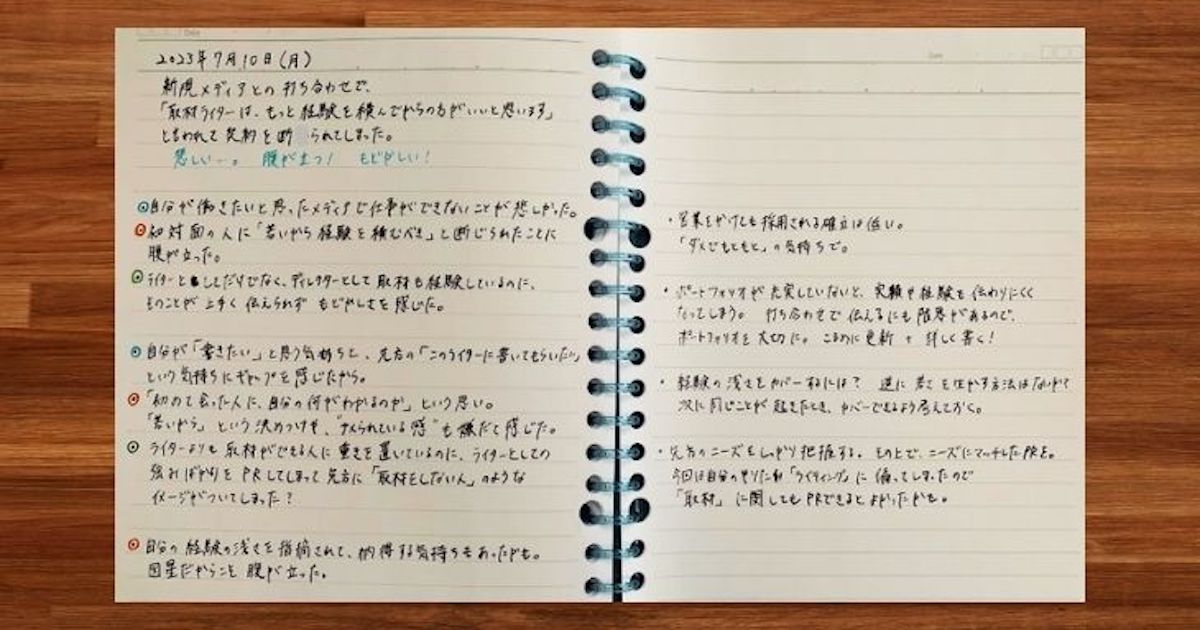 Date
2023年7月10日(月)
新規メディアとの打ち合わせで、
「取材ライターは、もっと経験を積んでからの方がいいと思います」
と言われて契約を断られてしまった。
悲しい…。 腹が立つ! もどかしい!
自分が働きたいと思ったメディアで仕事ができないことが悲しかった。
初対面の人に「若いから経験を積むべき」と断じられたことに
腹が立った。
ライターとしてだけでなく、ディレクターとして取材も経験しているのに、
そのことが上手く伝えられずもどかしさを感じた。
自分が「書きたい」と思う気持ちと、先方の「このライターに書いてもらいたい」
という気持ちにギャップを感じたから。
「初めて会った人に、自分の何がわかるのか」という思い。
「若いから」という決めつけや、"ナメられている感"も嫌だと感じた。
ライターよりも取材ができる人に重きを置いているのに、ライターとしての
強みばかりをPRしてしまって先方に「取材をしない人」のような
イメージがついてしまった?
自分の経験の浅さを指摘されて、納得する気持ちもあったかも。
図星だからこそ腹が立った。
Date
・営業をかけても採用される確立は低い。
「ダメでもともと」の気持ちで。
・ポートフォリオが充実していないと、実績や経験も伝わりにくく
なってしまう。 打ち合わせで伝えるにも限界があるので、
ポートフォリオを大切に。こまめに更新+詳しく書く!
・経験の浅さをカバーするには? 逆に若さを生かす方法はないか?
次に同じことが起きたとき、カバーできるよう考えておく。
・先方のニーズをしっかり把握する。その上で、ニーズにマッチしたPRを。
今回は自分のやりたい「ライティング」に偏ってしまったので
「取材」に関してもPRできるとよかったかも。